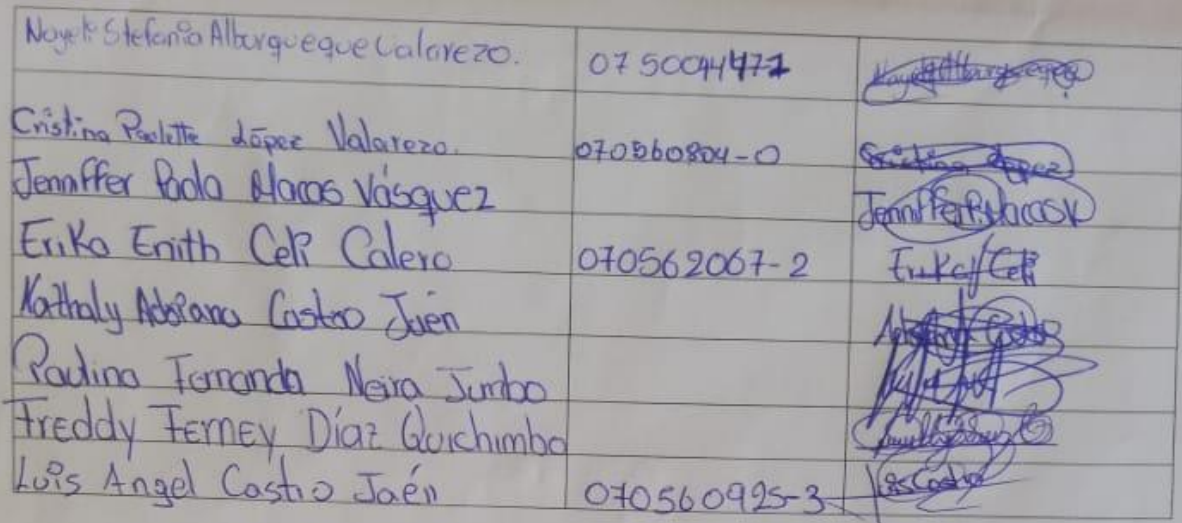 Nayeli Stefania Alburqueque Valarezo. 0750094477
Cristina Paulette López Valarezo. 070560804-0 Cristina López
Jenniffer Paola Macas Vásquez Jenniffer P. Macas V
Erika Enith Celi Calero 070562067-2 Erika Celi
Nathaly Adriana Castro Jaén
Paulina Fernanda Neira Jumbo
Freddy Ferney Díaz Quichimbo
Luis Angel Castro Jaén 070560925-3 Luis Castro